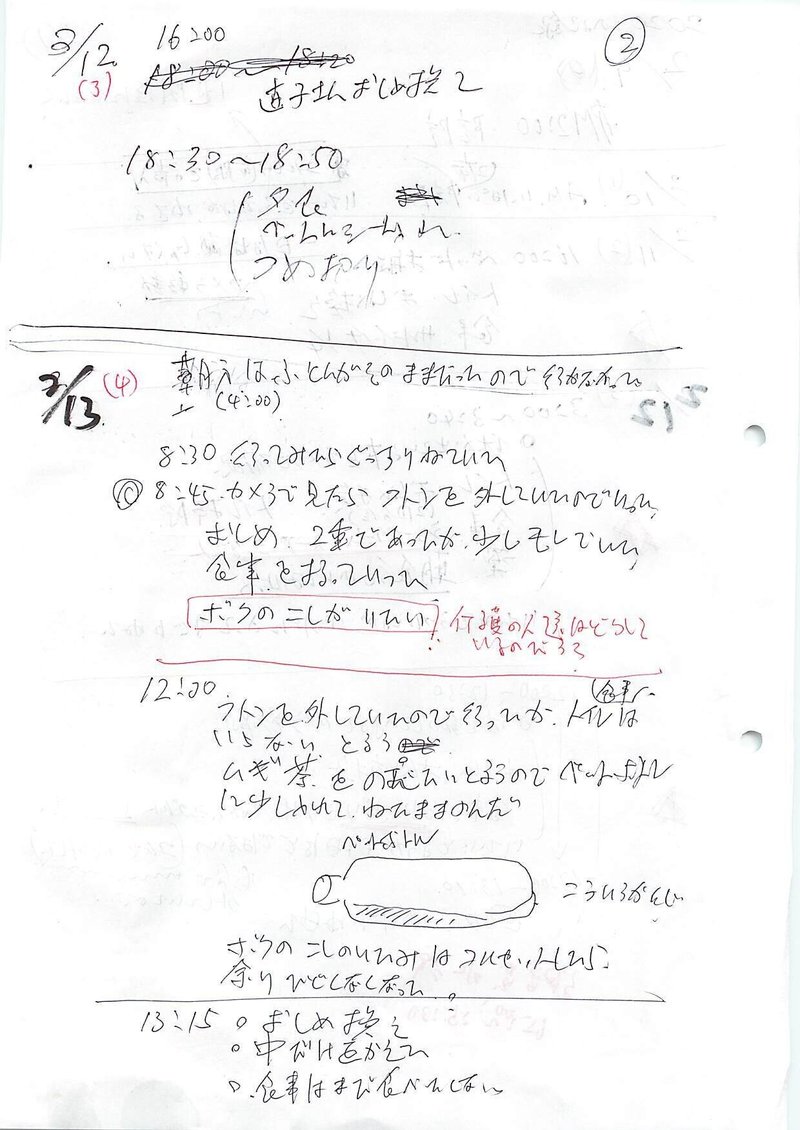 ②
2/12 16:00
(3) 直子さんおしめ換え
18:30〜18:50
夕食
ベットのシーツ
つめ切り
2/13 (4) 朝方はふとんがそのままだったので行かなかった
(4:00)
8:30 行ってみたらぐっすりねていた
8:45 カメラで見たらフトンを外していたのでいった
おしめ 2重であったが、少しモレていた
食事をもっていった
ボクのこしがいたい 介護の人達はどうして
いるのだろう
12:00
フトンを外していたので行ったが、トイレは 食事
いらないと言う
ムギ茶をのみたいと言うのでペットボトル
に少し入れて、ねたままのんだ
ペットボトル
こういうかんじ
ボクのこしのいたみはコルセットしたら
余りひどくなくなった。
13:15 ○ おしめ換え
○ 中だけ換えた
○ 食事はまだ食べてない